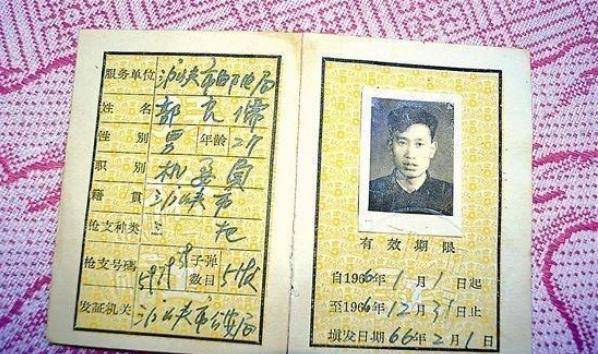 服务单位 汕头市邮电局
姓名 郭良儒
性别 男 年龄 27
职别 机要员
籍贯 汕头市
枪支种类
枪支号码 子弹数目 5发
发证机关 汕头市公安局
有效期限
自1966年1月1日起
至1966年12月31日止
填发日期 66年2月1日